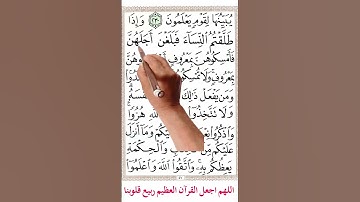 يُبَيِّنُهَا لِقَوْمٍ يَعْلَمُونَ ٢٣٠ وَإِذَا
طَلَّقْتُمُ ٱلنِّسَآءَ فَبَلَغْنَ أَجَلَهُنَّ
فَأَمْسِكُوهُنَّ بِمَعْرُوفٍ
بِمَعْرُوفٍ وَلَا تُمْسِكُو
وَمَن يَفْعَلْ ذَٰلِكَ
وَلَا تَتَّخِذُوٓا۟ هُزُوًا
وَٱذْكُرُوا۟ وَمَآ أَنزَلَ
عَلَيْكُم وَٱلْحِكْمَةِ
يَعِظُكُم بِهِۦ وَٱتَّقُوا۟ ٱللَّهَ وَٱعْلَمُوٓا۟
اللهم اجعل القرآن العظيم ربيع قلوبنا